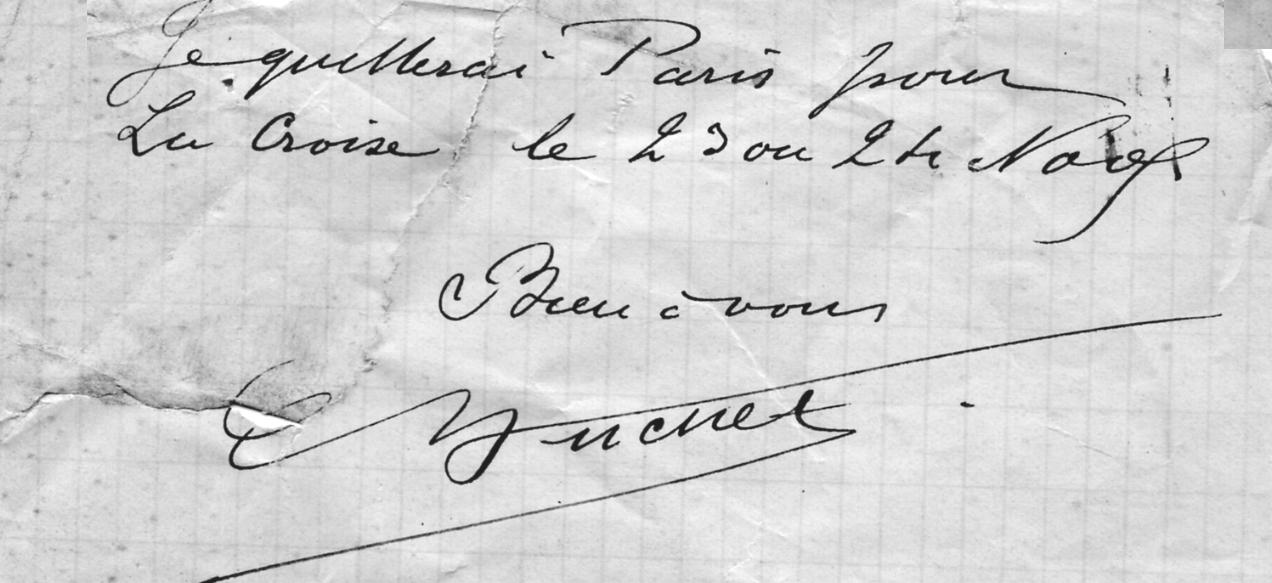 Je quitterai Paris pour
La Croise le 23 ou 24
Bien à vous